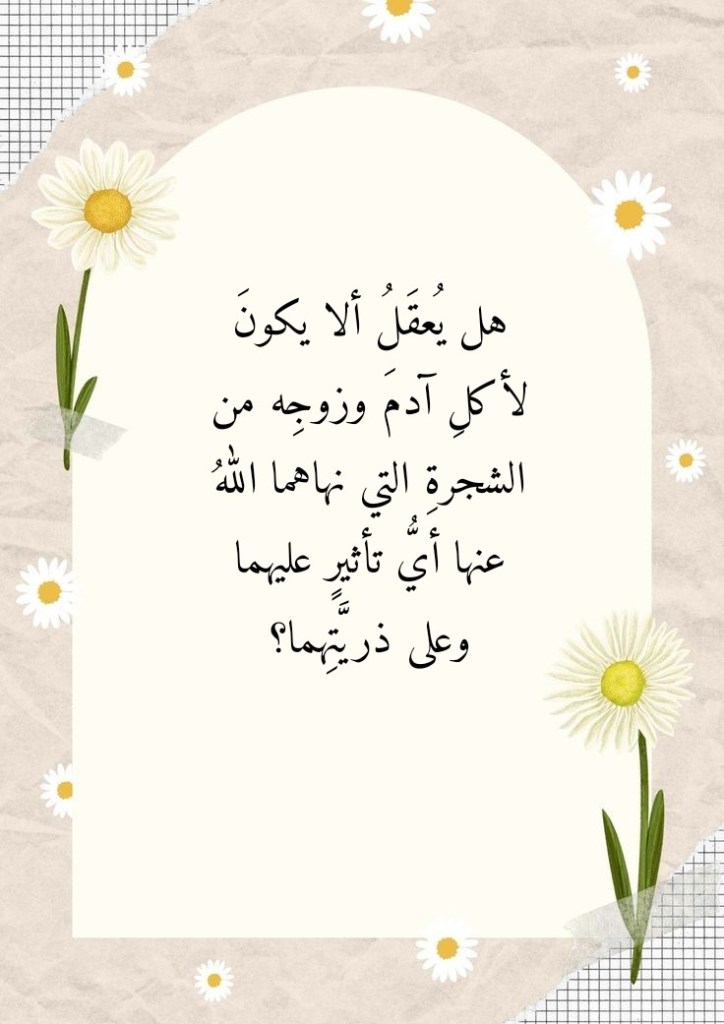 هل يُعقَلُ ألا يكونَ
لأكلِ آدمَ وزوجِه من
الشجرةِ التي نهاهما اللهُ
عنها أيُّ تأثيرٍ عليهما
وعلى ذريَّتِهما؟